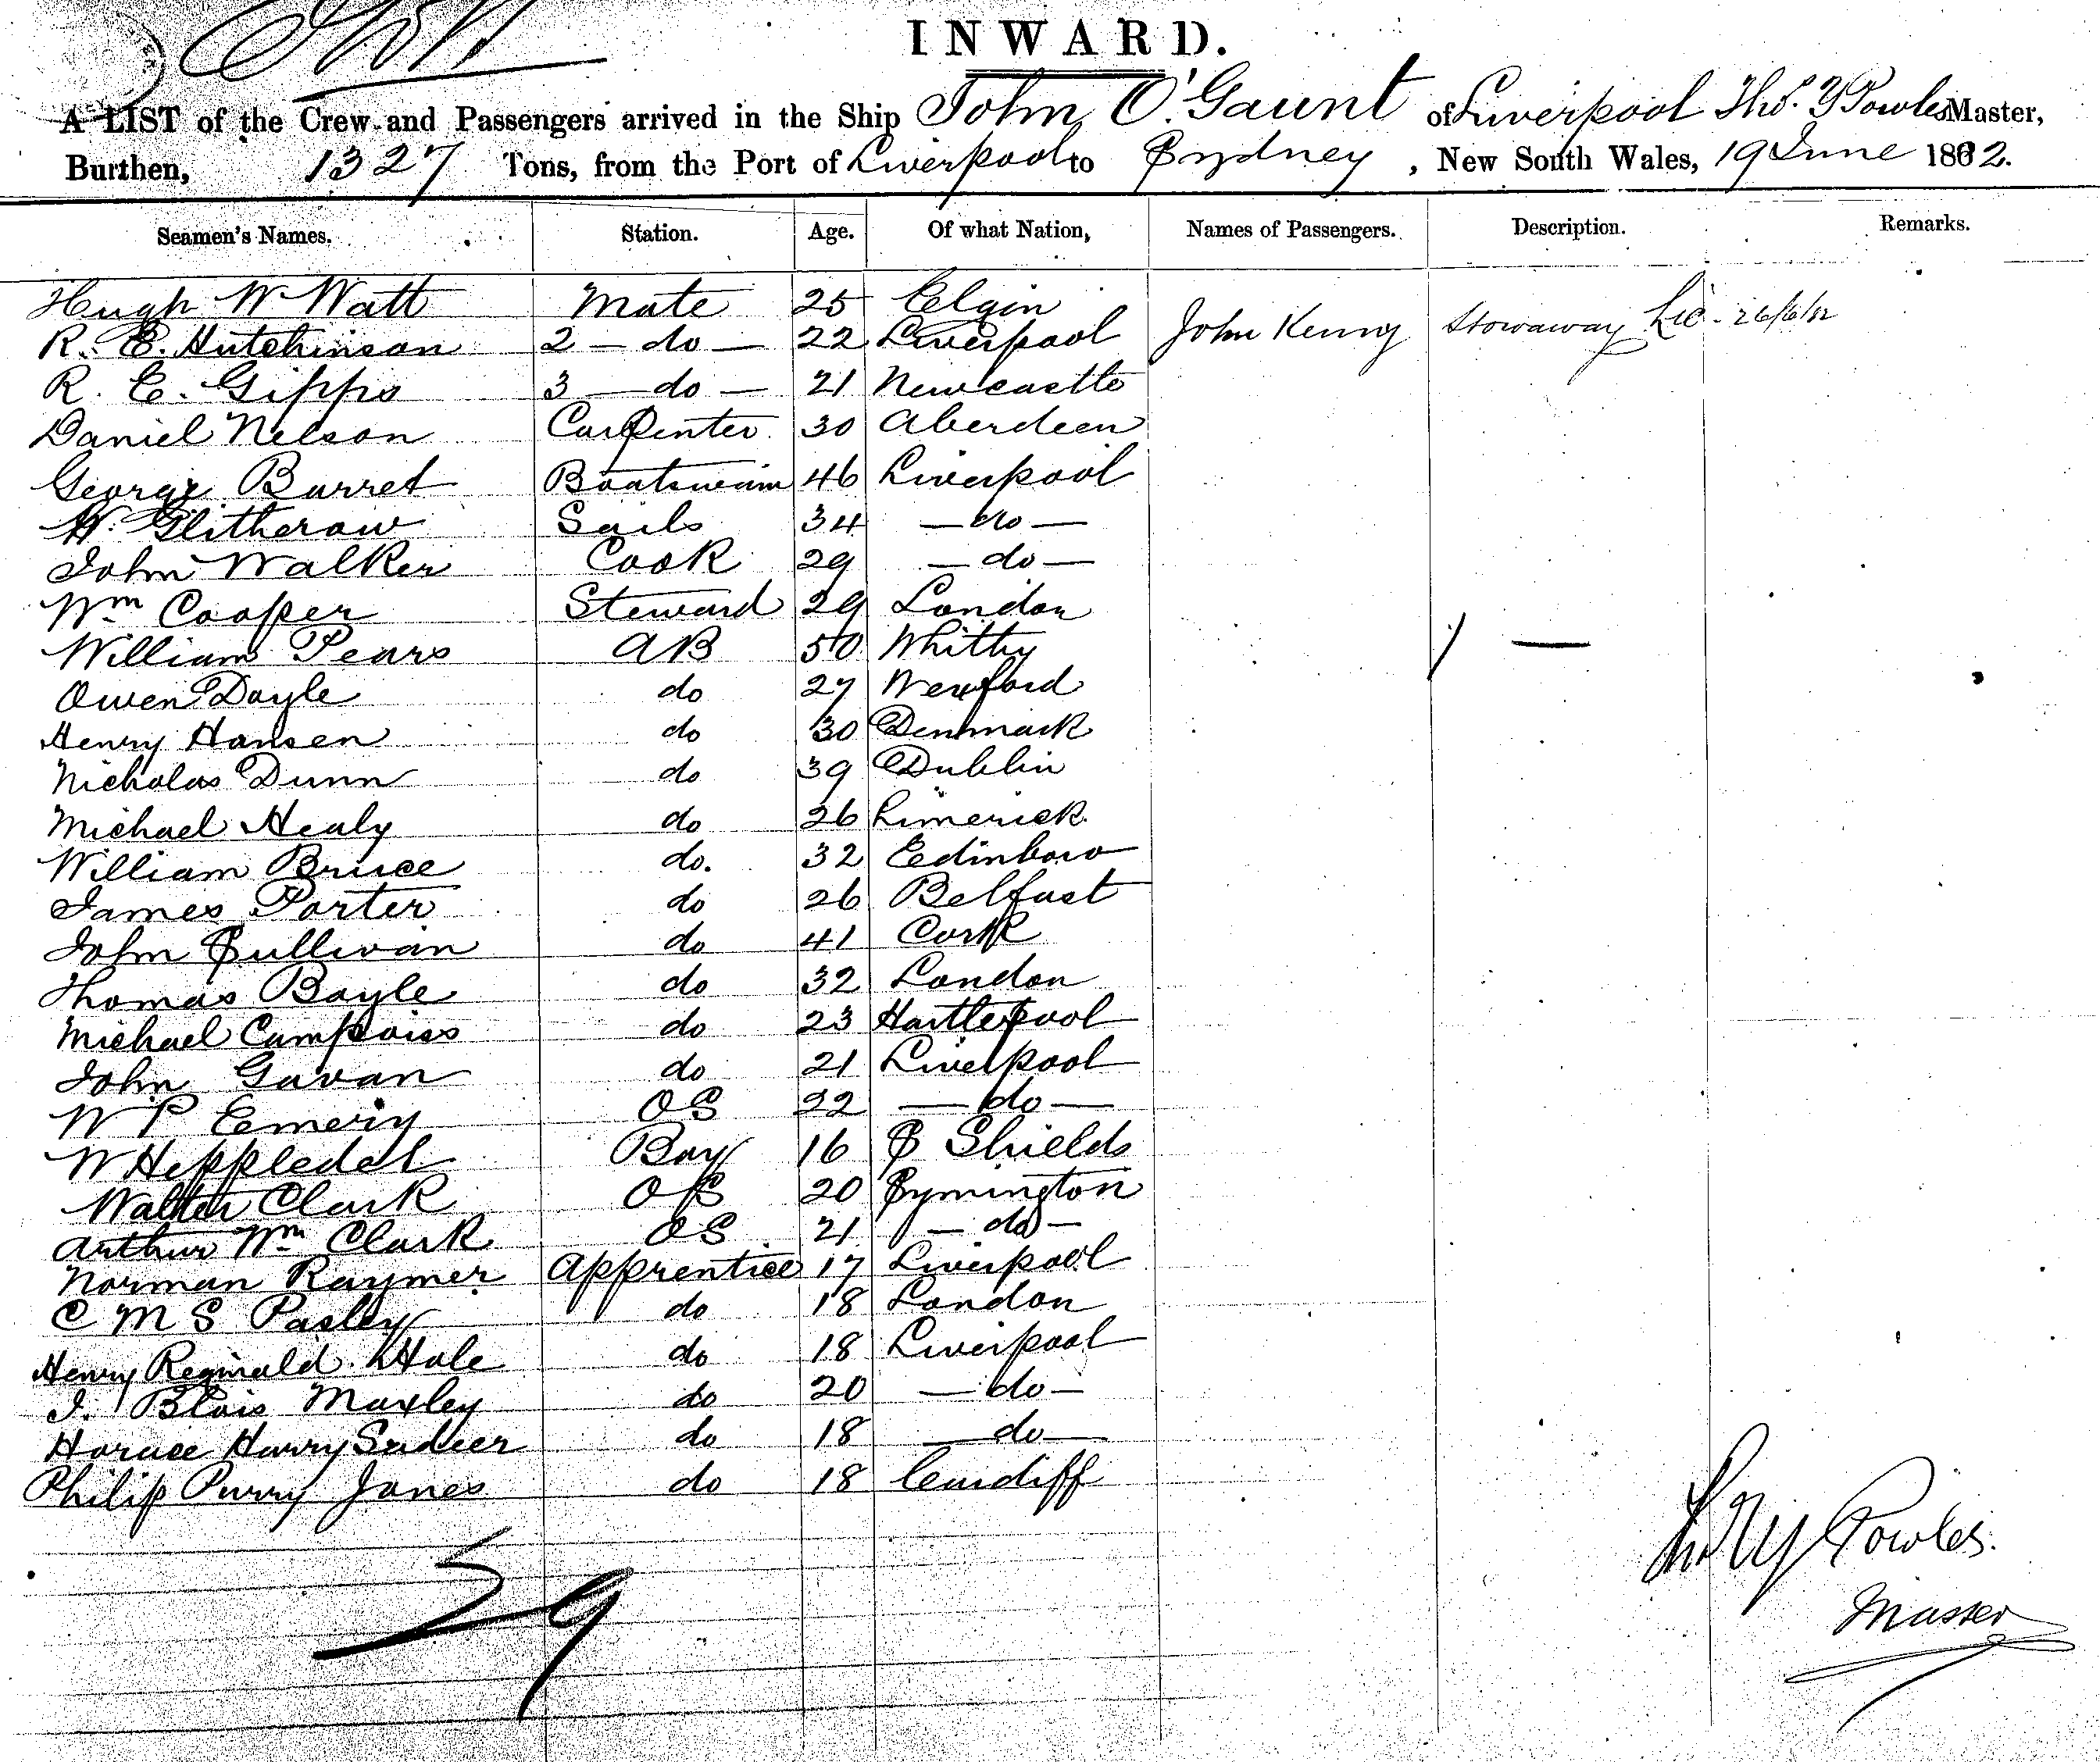 INWARD.
A LIST of the Crew and Passengers arrived in the Ship John O'Gaunt of Liverpool Thos. Y Powles Master,
Burthen, 1327 Tons, from the Port of Liverpool to Sydney, New South Wales, 19 June 1882.
Seamen's Names. Station. Age. Of what Nation, Names of Passengers. Description. Remarks.
Hugh W Watt Mate 25 Elgin
R. E. Hutchinson 2 — do — 22 Liverpool John Kenny Stowaway 26/6/82
R. E. Gipps 3 — do — 21 Newcastle
Daniel Nelson Carpenter 30 Aberdeen
George Barret Boatswain 46 Liverpool
W. Glitheraw Sails 34 — do —
John Walker Cook 29 — do —
Wm Cooper Steward 29 London
William Pears AB 50 Whitby
Owen Doyle do 27 Wexford
Henry Hansen do 30 Denmark
Nicholas Dunn do 39 Dublin
Michael Healy do 26 Limerick
William Bruce do. 32 Edinboro
James Porter do 26 Belfast
John Sullivan do 41 Cork
Thomas Bayle do 32 London
Michael do 23 Hartlepool
John Gavan do 21 Liverpool
W P Emery OS 22 — do —
W Heppledel Boy 16 S Shields
Walter Clark OS 20 Symington
Arthur Wm Clark OS 21 — do —
Norman Raymer Apprentice 17 Liverpool
C M S Pasley do 18 London
Henry Reginald Hale do 18 Liverpool
J. Blois Maxley do 20 — do —
Horace Harry do 18 — do —
Philip Purry Jones do 18 Cardiff
29
Thos Y Powles.
Master